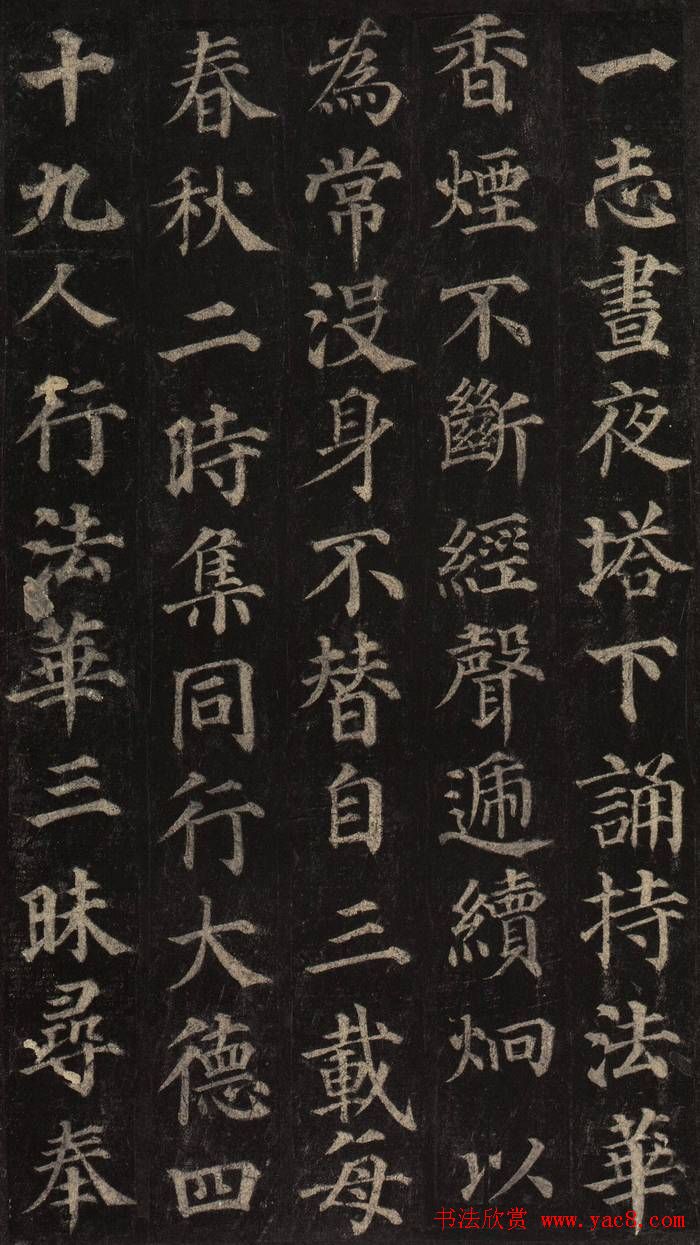 一志晝夜塔下誦持法華
香煙不斷經聲遞續炯以
為常沒身不替自三載每
春秋二時集同行大德四
十九人行法華三昧尋奉
书法欣赏 www.yac8.com